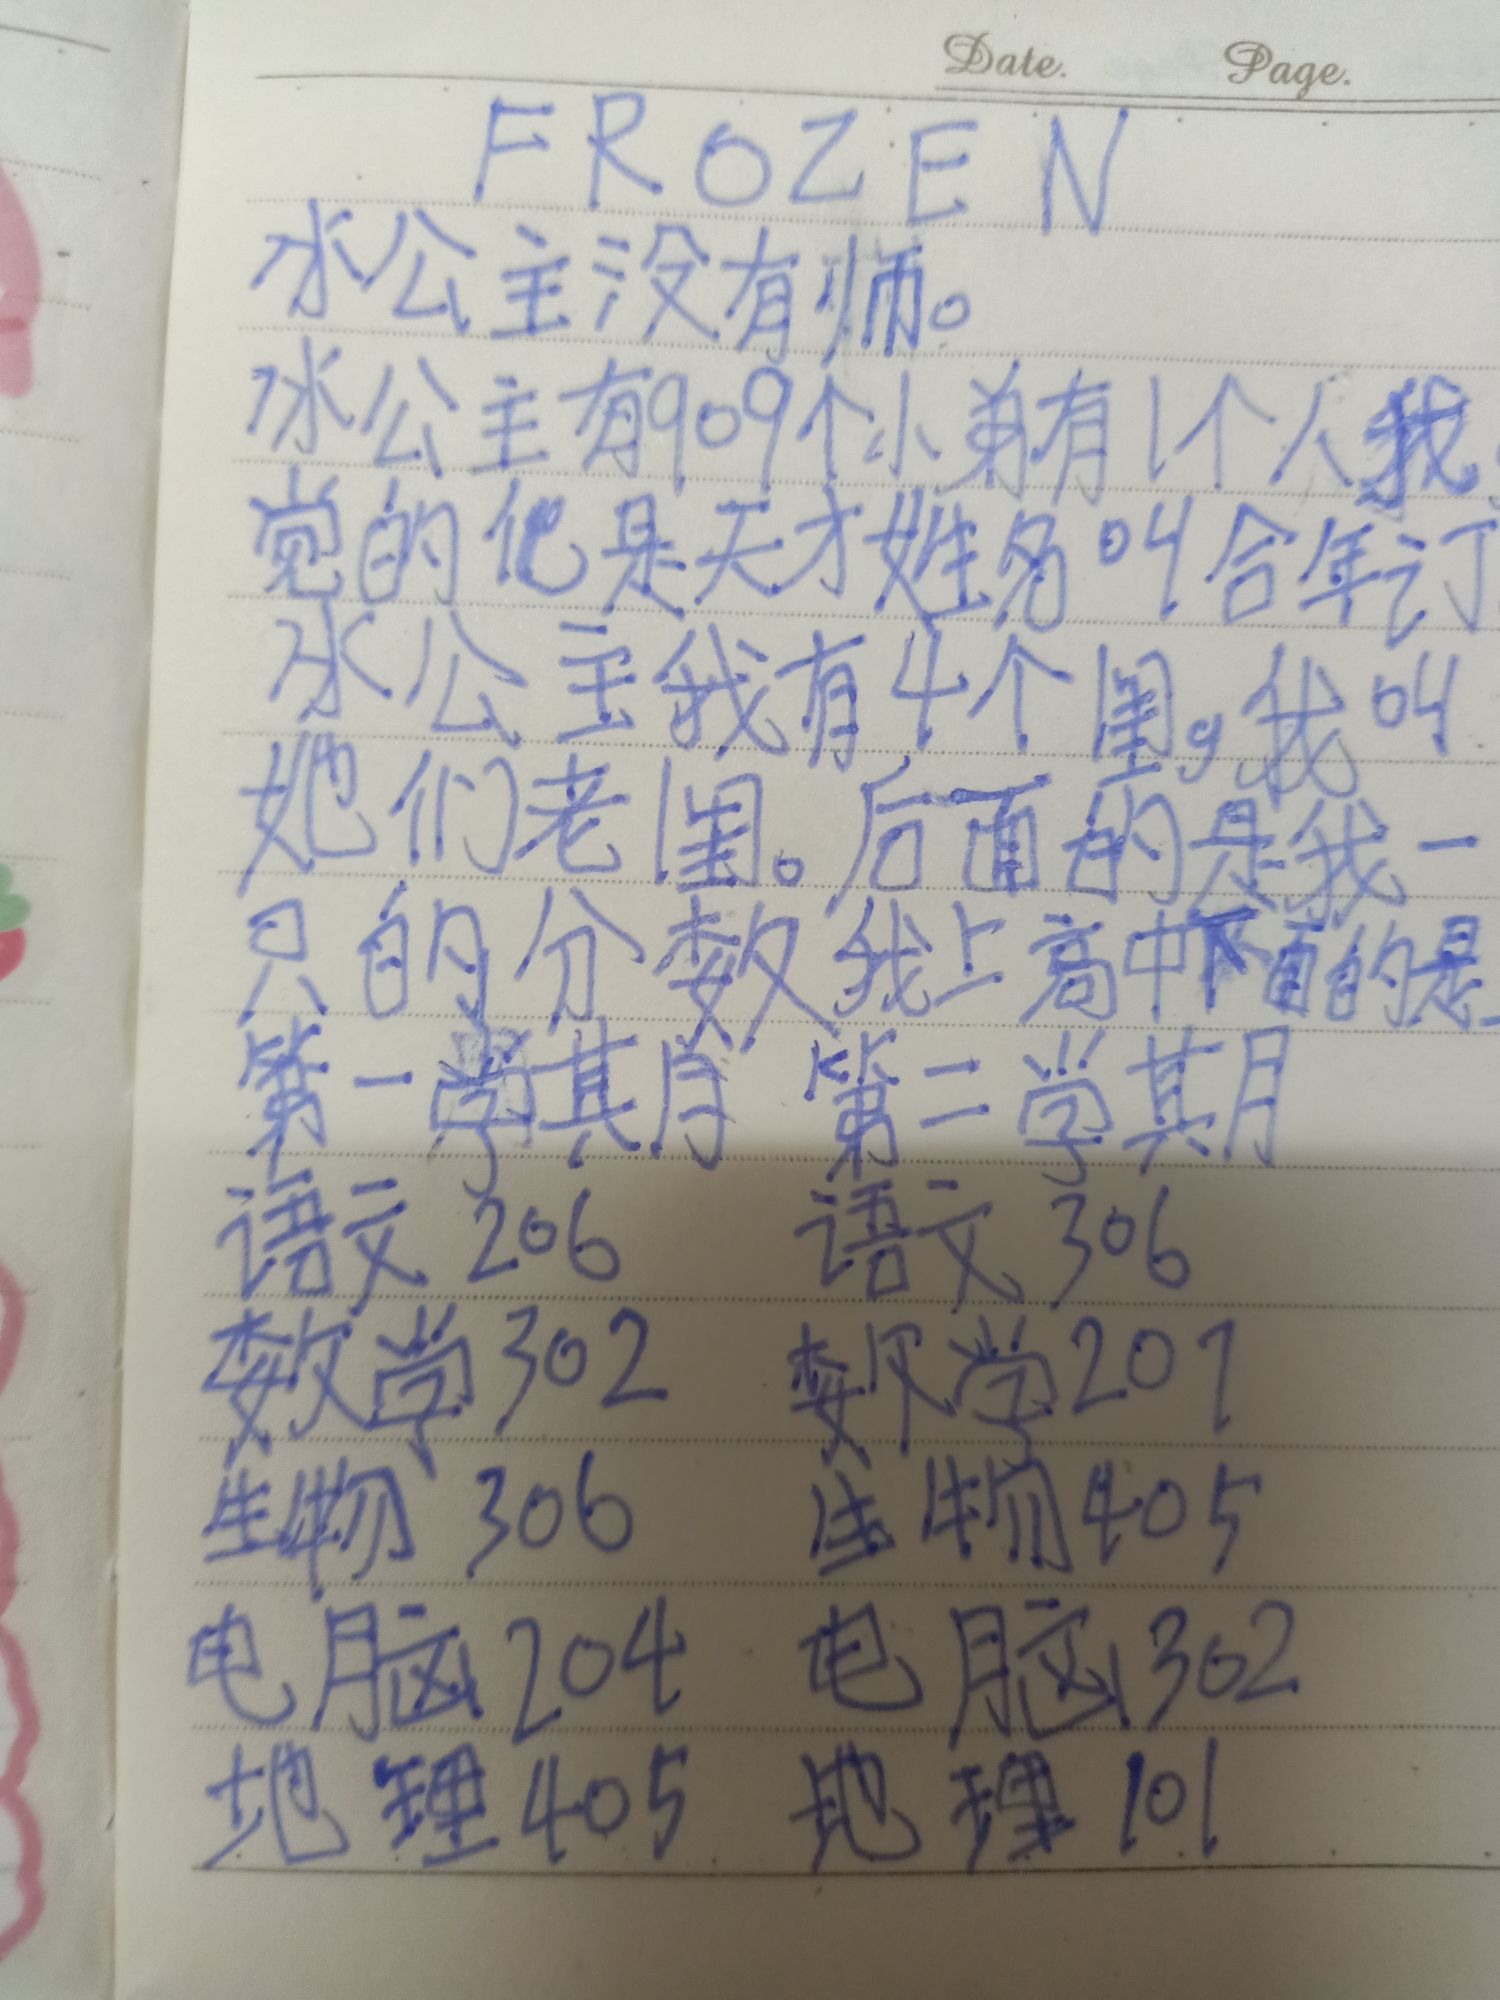 Date. Page.
FROZEN
冰公主没有师。
冰公主有909个小弟有1个人我
觉的他是天才姓名叫合年订
冰公主我有4个闺。我叫
她们老闺。后面的是我一
只的分数我上高中下面的是
第一学期 第二学期
语文 206 语文 306
数学 302 数学 207
生物 306 生物 405
电脑 204 电脑 302
地理 405 地理 101